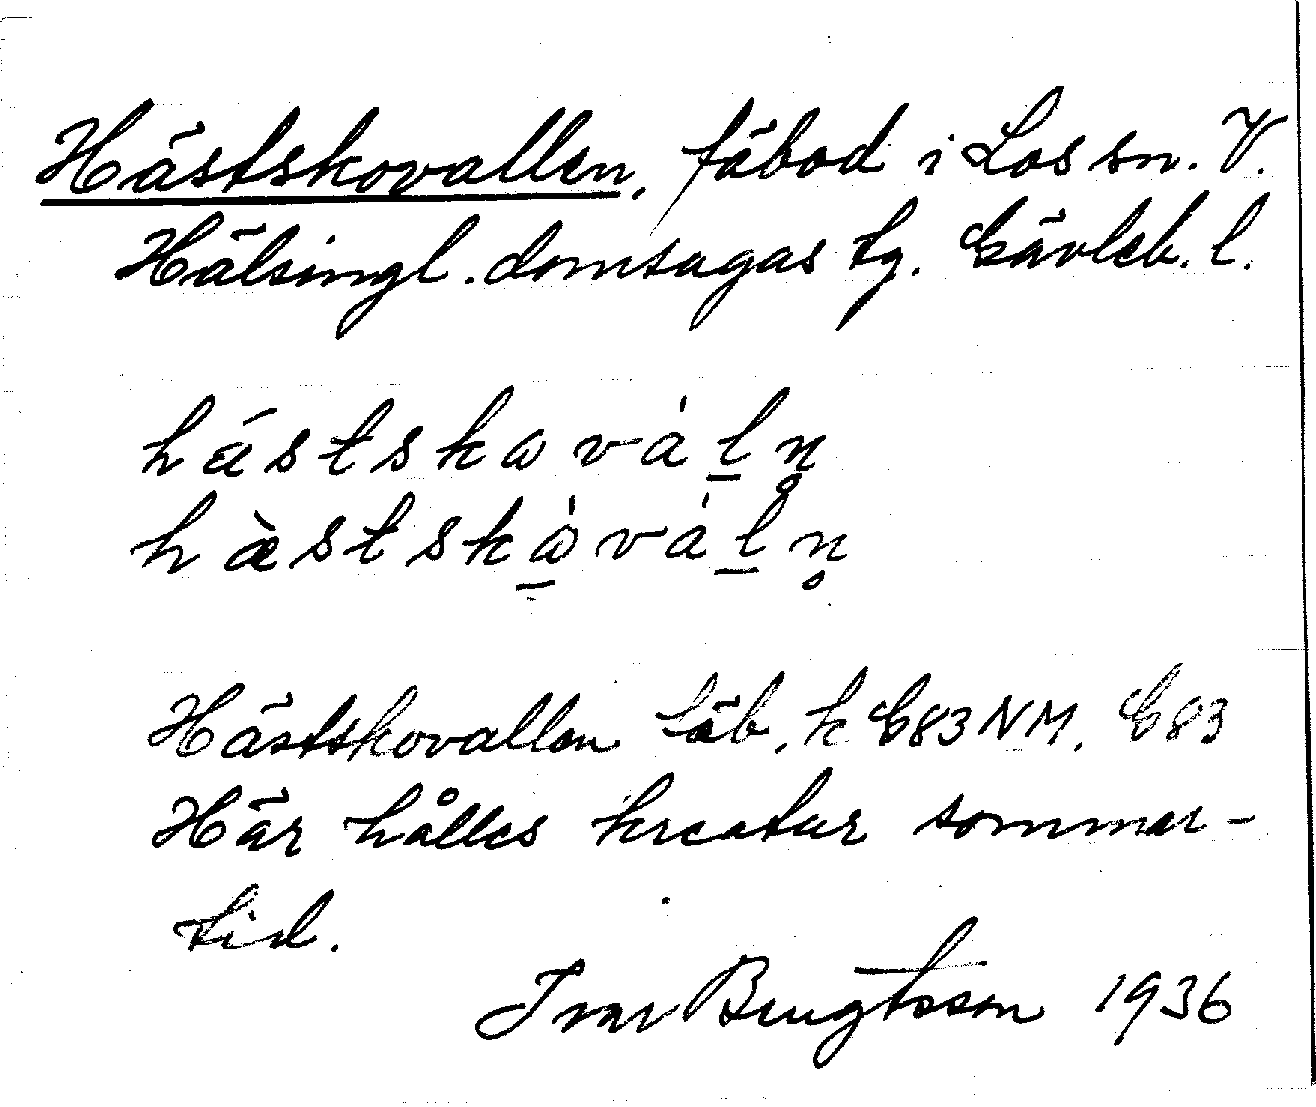 Hästskovallen, fäbod i Los sn. V.
Hälsingl. domsagas tg. Gävleb. l.
hástskɷvàl̲n̥
hæ̀stskɷ̲̀vàl̲n̥
Hästskovallen fäb. k G83NM. G83
Här hålles kreatur sommar-
tid.
Ivar Bengtsson 1936